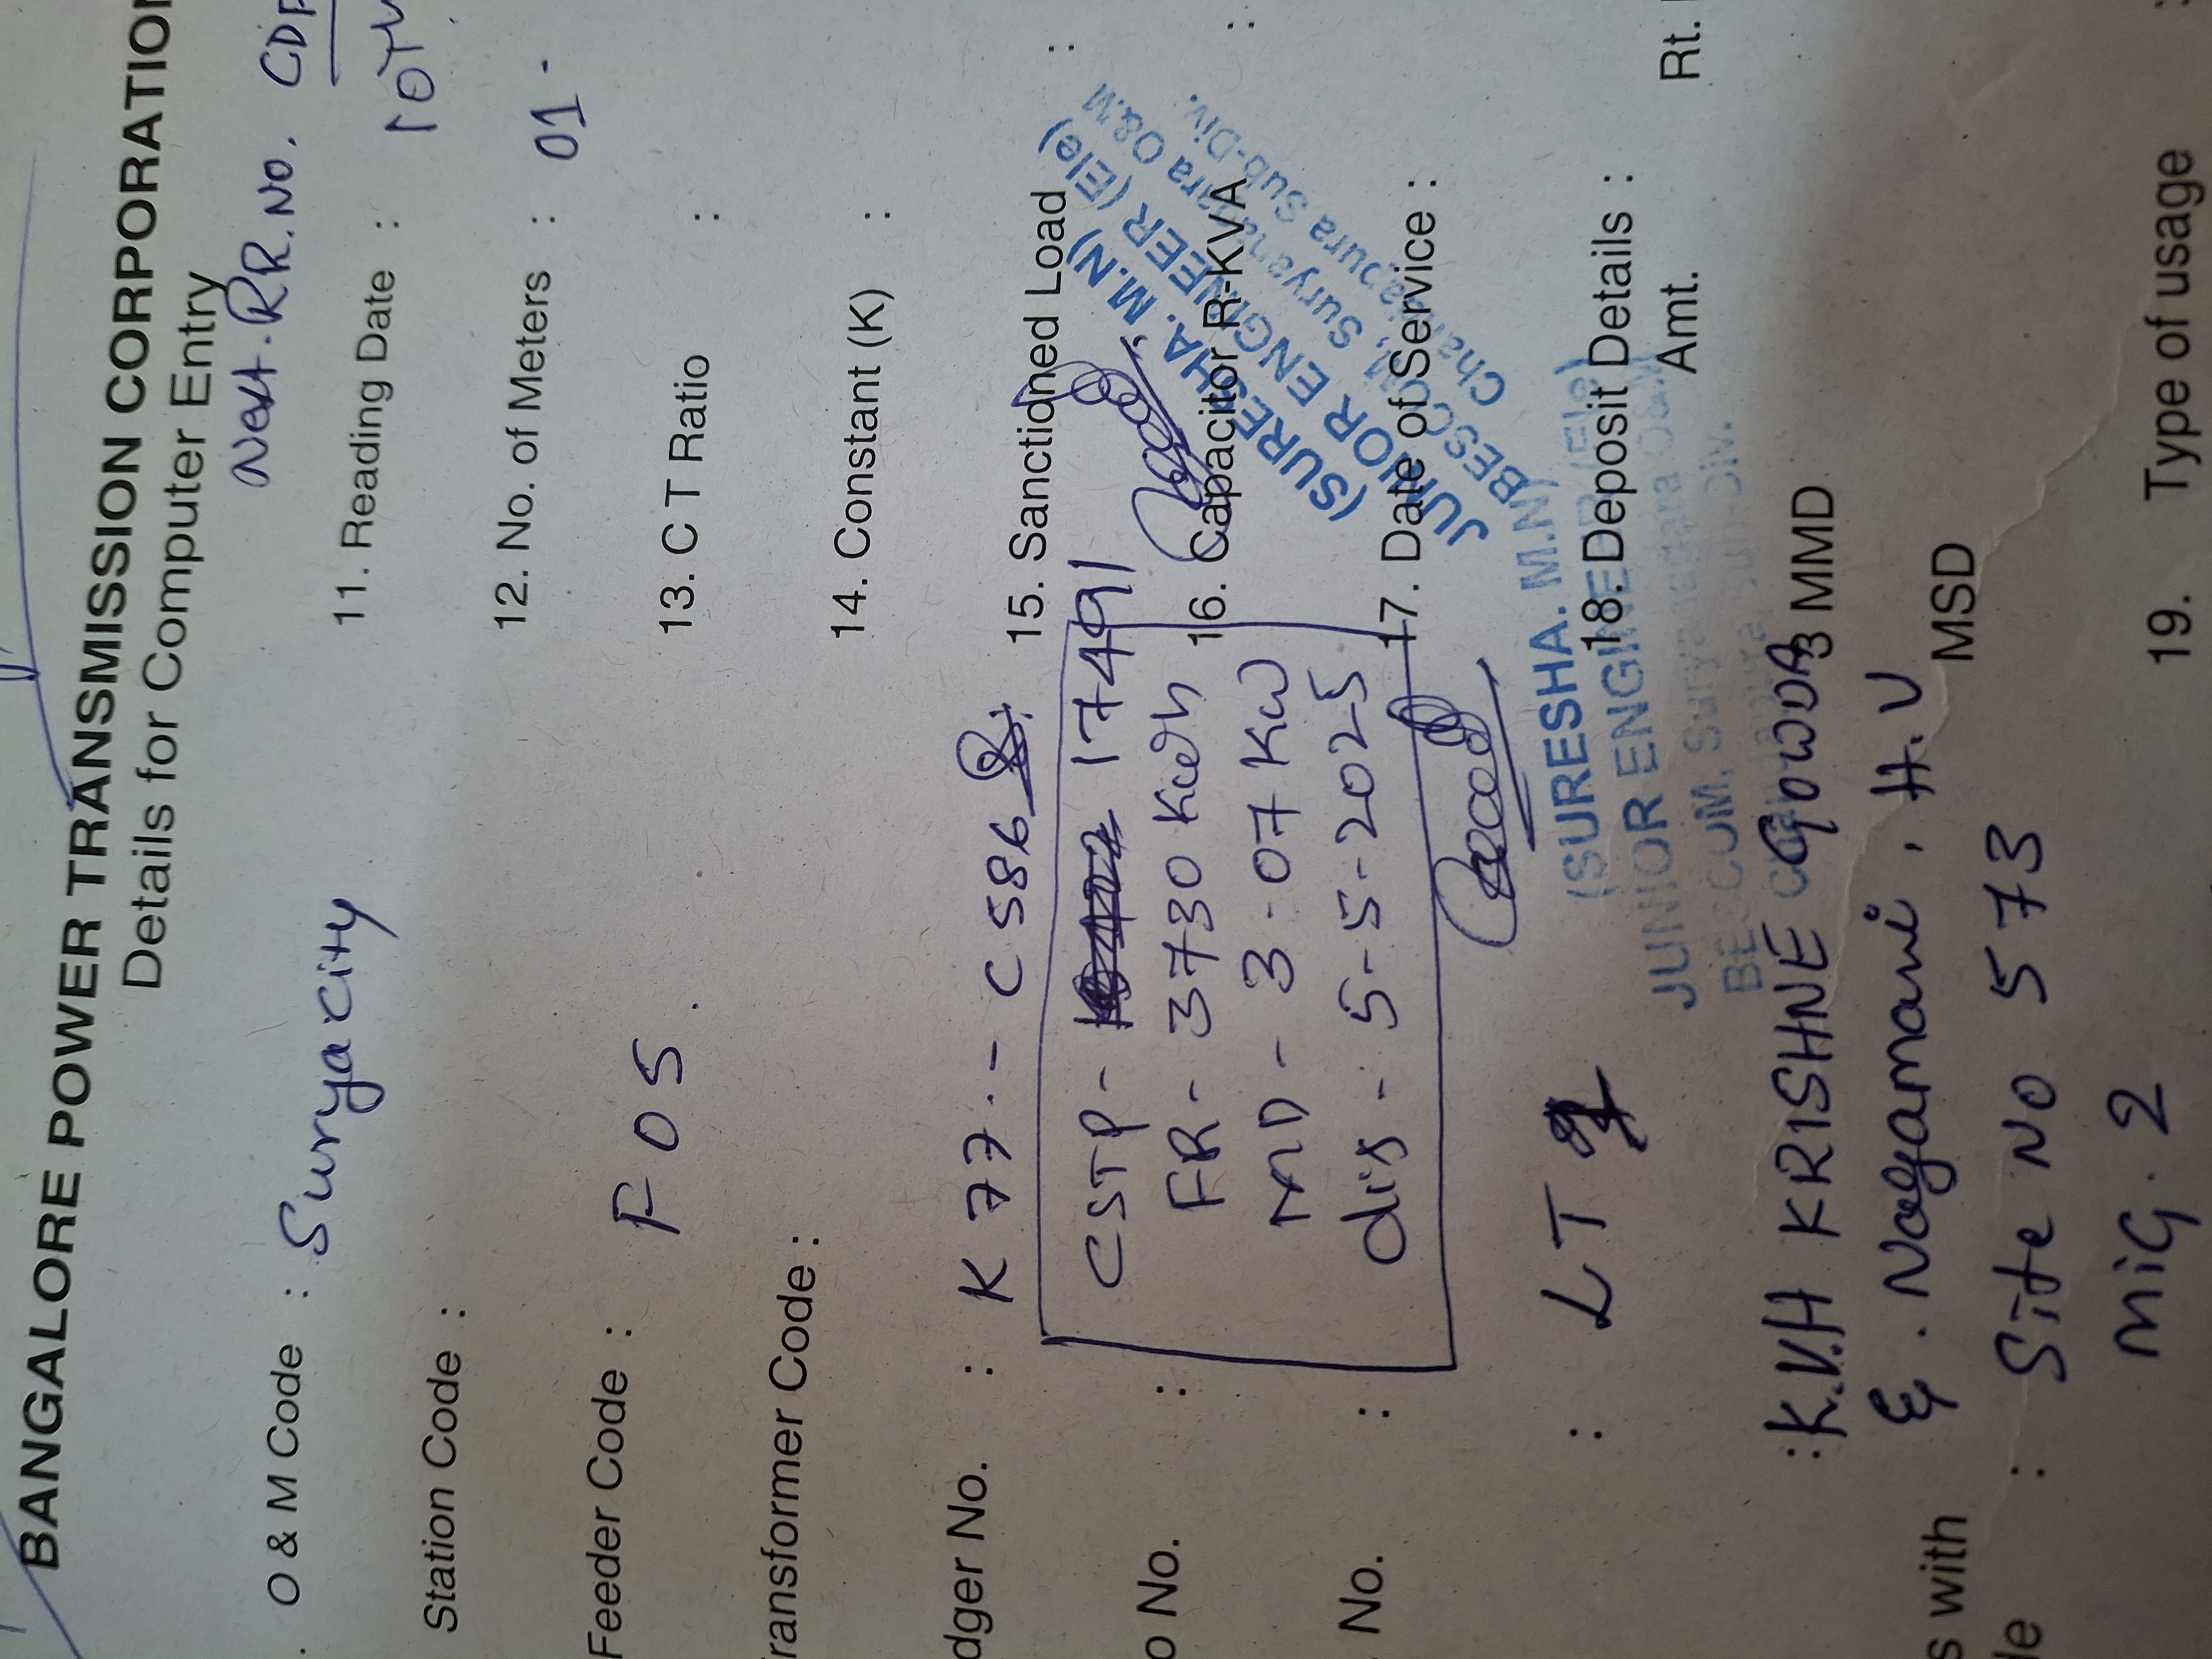 BANGALORE POWER TRANSMISSION CORPORATION
Details for Computer Entry
Next. RR. No. CDP
O & M Code : Suryacity
11. Reading Date : 10TH
Station Code :
12. No. of Meters : 01 -
Feeder Code : F 05.
13. C T Ratio :
ransformer Code :
14. Constant (K) :
dger No. : K 77.- C 586
15. Sanctioned Load :
o No. :
CSTP - 17491
FR - 3730 Kwh
16. Capacitor R-KVA :
MD - 3.07 KW
No. :
dis - 5-5-2025
17. Date of Service :
(SURESHA. M.N)
JUNIOR ENGINEER (Ele)
BESCOM, Suryanagara O&M
Chandapura Sub-Div.
: LT
18. Deposit Details :
(SURESHA. M.N)
JUNIOR ENGINEER (Ele)
BESCOM, Suryanagara O&M
Sub-Div.
Amt. Rt.
: K.V.H KRISHNE GOWDA
3 MMD
& . Nagamani . H.V
s with
MSD
de : Site No 573
MiG. 2
19. Type of usage :